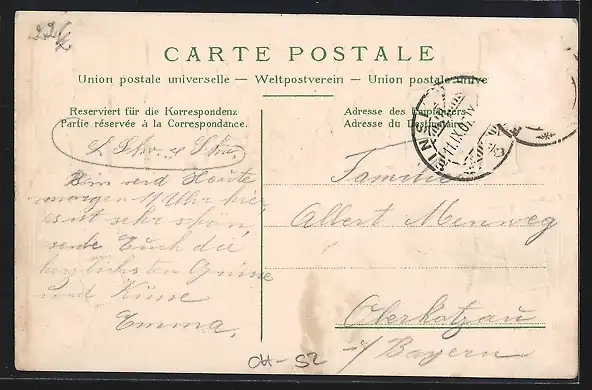 CARTE POSTALE
Union postale universelle — Weltpostverein — Union postale unive
Reserviert für die Korrespondenz
Partie réservée à la Correspondance.
Adresse des Empfängers
Adresse du Destinataire
morgen 11 Uhr hier,
es ist sehr schön,
sende Euch die
herzlichsten Grüsse
und Küsse
Emma.
Familie
Albert Menweg
Oberkotzau
i/ Bayern
OH-S2